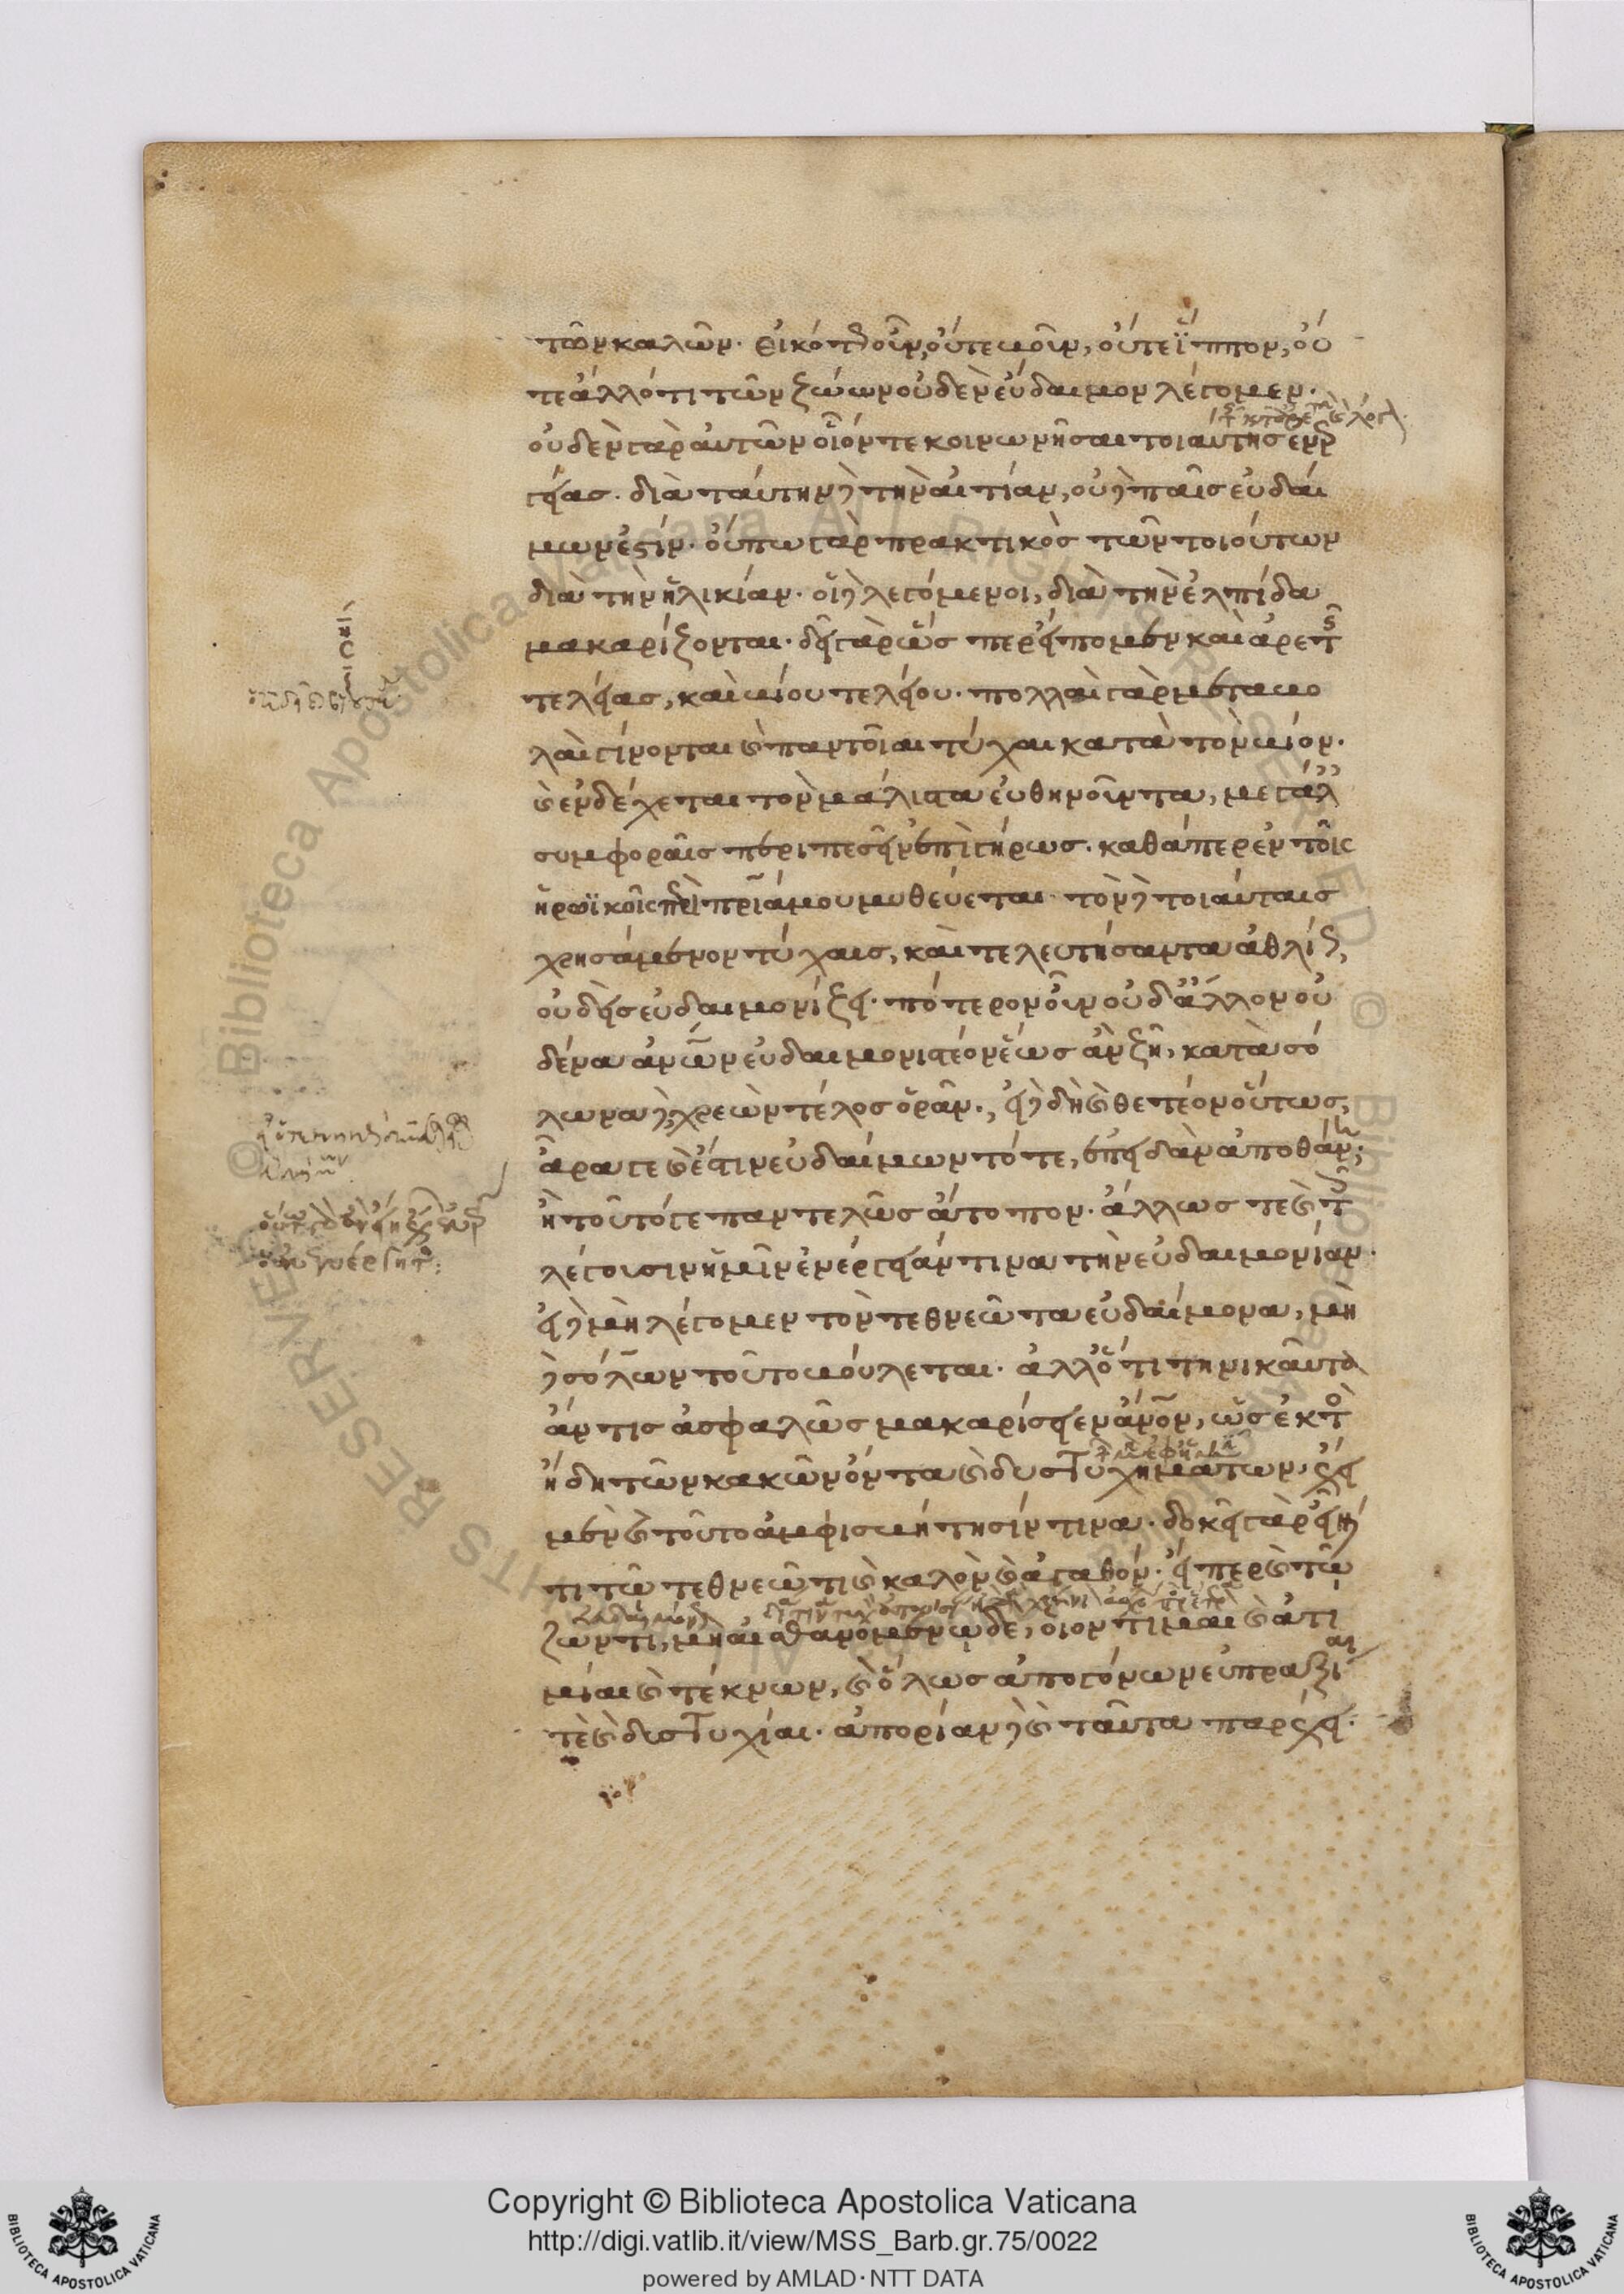 τῶν καλῶν. εἰκότως οὖν, οὔτε βοῦν, οὔτε ἵππον, οὔ
τε ἄλλό τι τῶν ζώων οὐδὲν εὔδαιμον λέγομεν.
οὐδὲν γὰρ αὐτῶν οἷόν τε κοινωνῆσαι τοιαύτης ἐνερ
γείας. διὰ ταύτην δὲ τὴν αἰτίαν, οὐδὲ παῖς εὐδαί
μων ἐστίν. οὔπω γὰρ πρακτικὸς τῶν τοιούτων
διὰ τὴν ἡλικίαν. οἱ δὲ λεγόμενοι, διὰ τὴν ἐλπίδα
μακαρίζονται. δεῖ γὰρ ὥσπερ εἴπομεν καὶ ἀρετῆς
τελείας, καὶ βίου τελείου. πολλαὶ γὰρ μεταβο
λαὶ γίνονται καὶ παντοῖαι τύχαι κατὰ τὸν βίον.
καὶ ἐνδέχεται τὸν μάλιστα εὐθηνοῦντα, μεγάλαις
συμφοραῖς περιπεσεῖν ἐπὶ γήρως. καθάπερ ἐν τοῖς
ἡρωϊκοῖς περὶ πριάμου μυθεύεται. τὸν δὲ τοιαύταις
χρησάμενον τύχαις, καὶ τελευτήσαντα ἀθλίως,
οὐδεὶς εὐδαιμονίζει. πότερον οὖν οὐδ' ἄλλον οὐ
δένα ἀνθρώπων εὐδαιμονιστέον ἕως ἂν ζῇ, κατὰ σό
λωνα δὲ, χρεὼν τέλος ὁρᾶν., εἰ δὲ δὴ καὶ θετέον οὕτως,
ἆρα γε καὶ ἔστιν εὐδαίμων τότε, ἐπειδὰν ἀποθάνῃ;
ἢ τοῦτό γε παντελῶς ἄτοπον. ἄλλως τε καὶ τοῖς
λέγουσιν ἡμῖν ἐνέργειάν τινα τὴν εὐδαιμονίαν.
εἰ δὲ μὴ λέγομεν τὸν τεθνεῶτα εὐδαίμονα, μὴ
δὲ σόλων τοῦτο βούλεται. ἀλλ' ὅτι τηνικαῦτα
ἄν τις ἀσφαλῶς μακαρίσειεν ἄνθρωπον, ὡς ἐκτὸς
ἤδη τῶν κακῶν ὄντα καὶ δυστυχημάτων, ἔχει
μὲν καὶ τοῦτο ἀμφισβήτησίν τινα. δοκεῖ γὰρ εἶναί
τι τῷ τεθνεῶτι καὶ καλὸν καὶ ἀγαθόν. εἴπερ καὶ τῷ
ζῶντι, μὴ αἰσθανομένῳ δέ, οἷον τιμαὶ καὶ ἀτι
μίαι καὶ τέκνων, καὶ ὅλως ἀπογόνων εὐπραξίαι
τὲ καὶ δυστυχίαι. ἀπορίαν δὲ καὶ ταῦτα παρέχει.
Copyright © Biblioteca Apostolica Vaticana
http://digi.vatlib.it/view/MSS_Barb.gr.75/0022
powered by AMLAD · NTT DATA
BIBLIOTECA APOSTOLICA VATICANA
BIBLIOTECA APOSTOLICA VATICANA